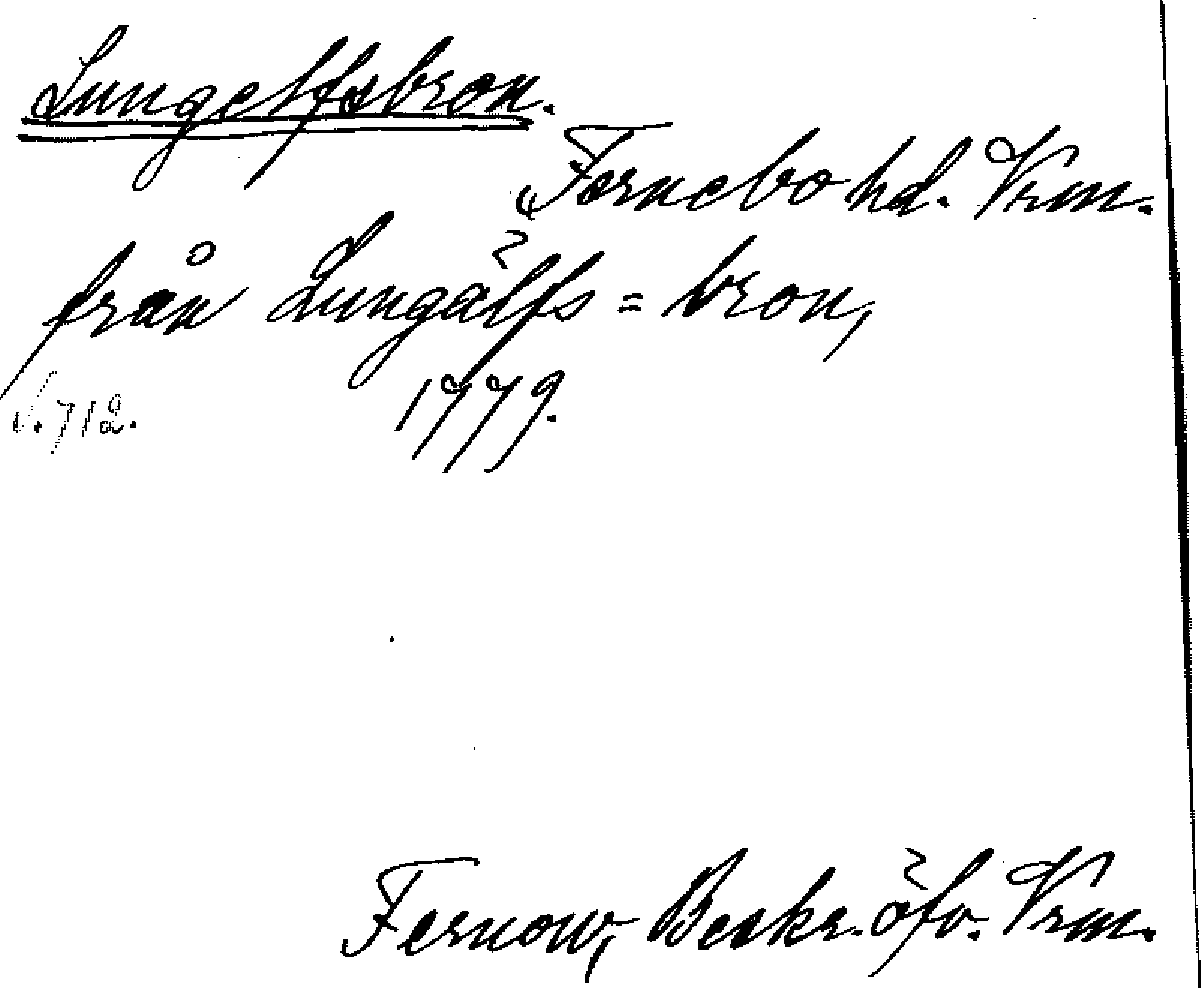 Lungelfsbron.
Fernebo hd. Vrm.
från Lungälfs=bron,
s. 712. 1779.
Fernow, Beskr. öfv. Vrm.